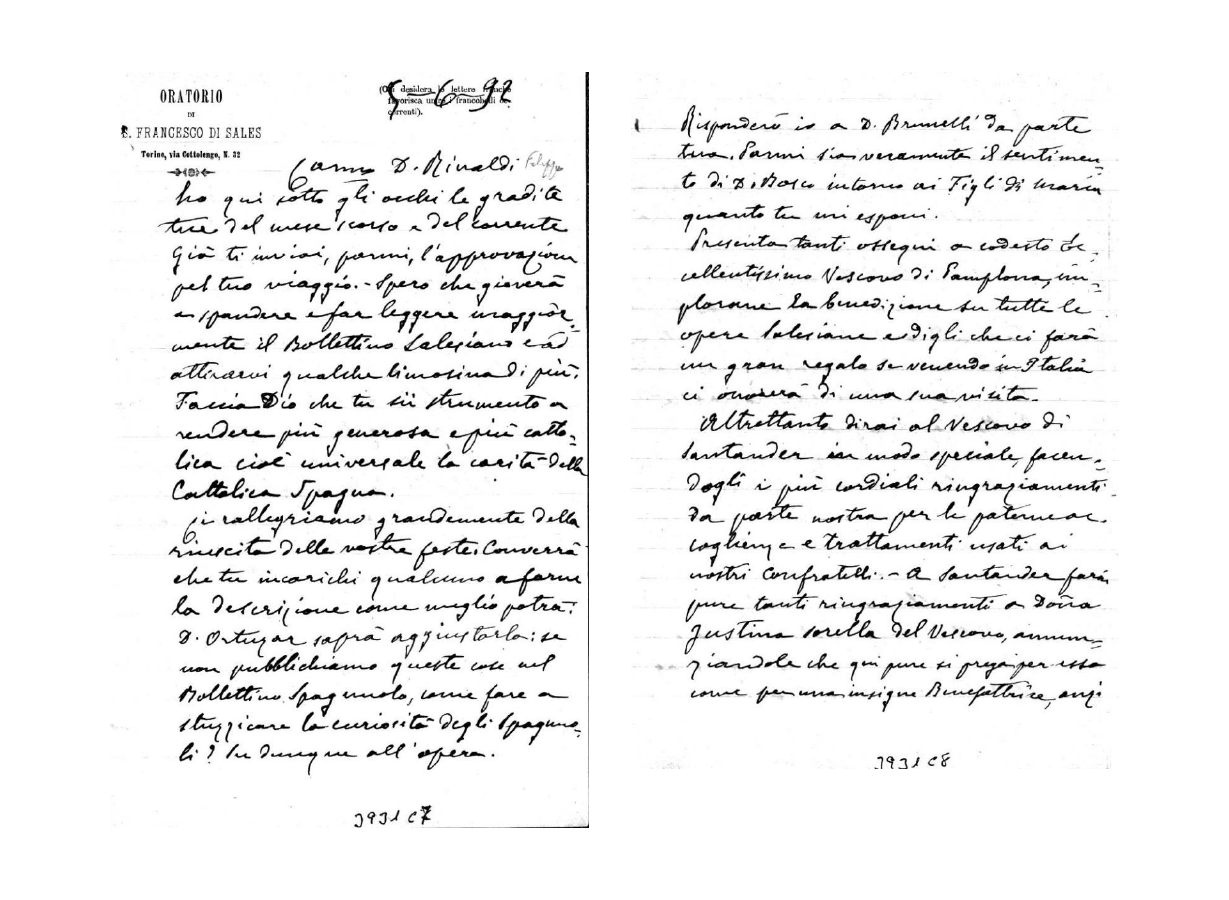 ORATORIO
DI
S. FRANCESCO DI SALES
Torino, via Cottolengo, N. 32
5-6-92
(Chi desidera le lettere franche
favorisca unire i francobolli oc-
correnti).
Carmo D. Rinaldi Filippo
ho qui sotto gli occhi le gradite
tue del mese scorso e del corrente
Già ti inviai, parmi, l'approvazione
pel tuo viaggio. - Spero che gioverà
a spandere e far leggere maggior-
mente il Bollettino Salesiano e ad
attirarvi qualche limosina di più.
Faccia Dio che tu sii strumento a
rendere più generosa e più catto-
lica cioè universale la carità della
Cattolica Spagna.
Ci rallegriamo grandemente della
riuscita delle vostre feste. Converrà
che tu incarichi qualcuno a farne
la descrizione come meglio potrà:
D. Ortuzar saprà aggiustarla: se
non pubblichiamo queste cose nel
Bollettino Spagnuolo, come fare a
stuzzicare la curiosità degli Spagnuo-
li? Su dunque all'opera.
3931 C7
Risponderò io a D. Brunelli da parte
tua. Parmi sia veramente il sentimen-
to di D. Bosco intorno ai Figli di Maria
quanto tu mi esponi.
Presenta tanti ossequi a codesto Ec-
cellentissimo Vescovo di Pamplona, im-
plorane la benedizione su tutte le
opere Salesiane e digli che ci farà
un gran regalo se venendo in Italia
ci onorerà di una sua visita.
Altrettanto dirai al Vescovo di
Santander in modo speciale, facen-
dogli i più cordiali ringraziamenti
da parte nostra per le paterne ac-
coglienze e trattamenti usati ai
nostri Confratelli. - A Santander farai
pure tanti ringraziamenti a Doña
Justina sorella del Vescovo, annun-
ziandole che qui pure si prega per essa
come per una insigne Benefattrice, anzi
3931 C8